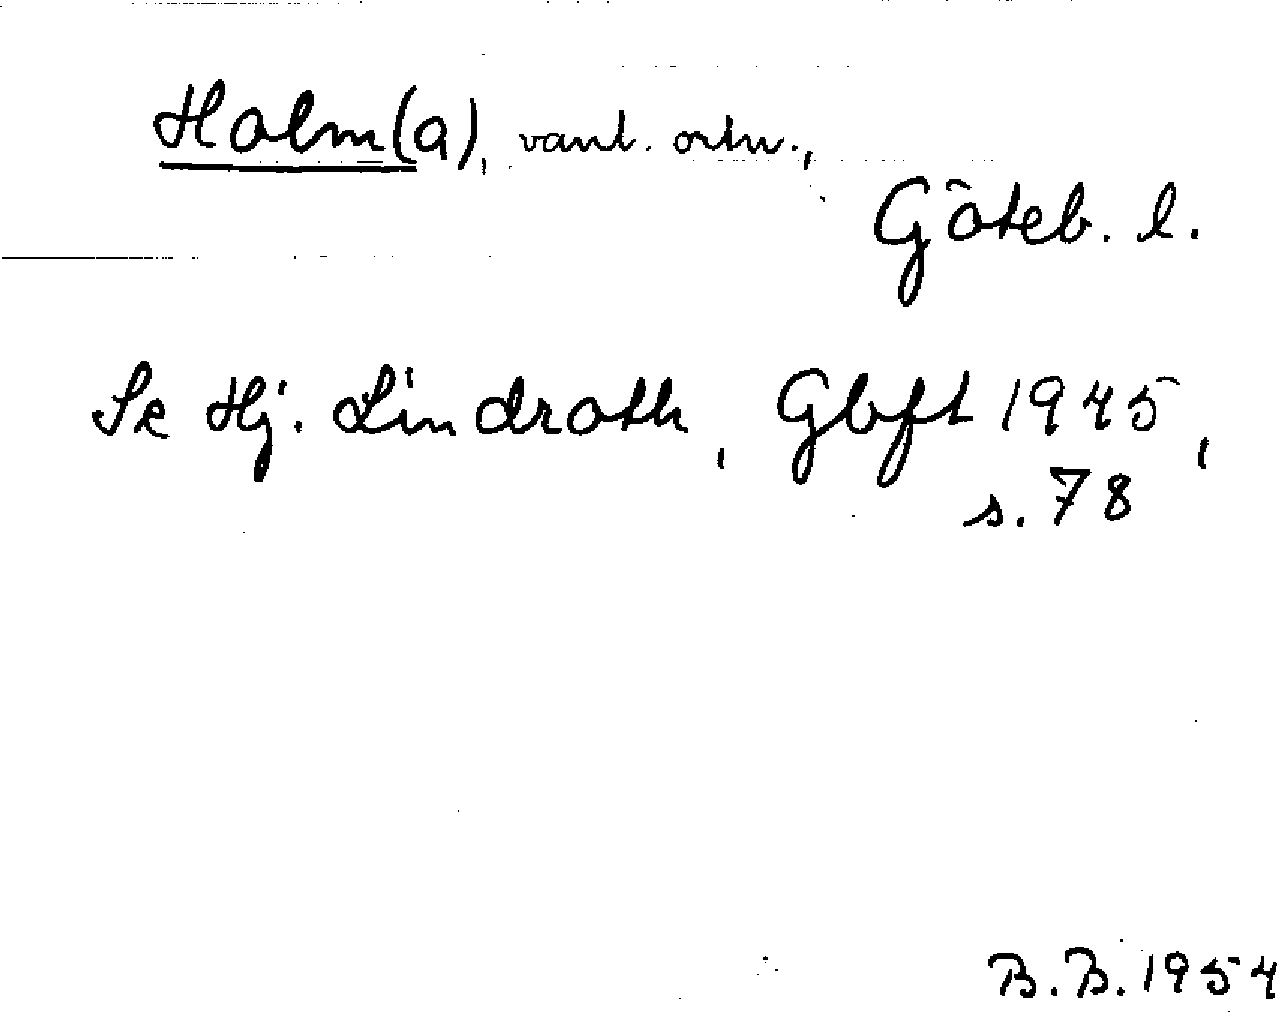 Holm(a), vanl. ortn.,
Göteb. l.
Se Hj. Lindroth, Gbft 1945,
s. 78
B.B. 1954